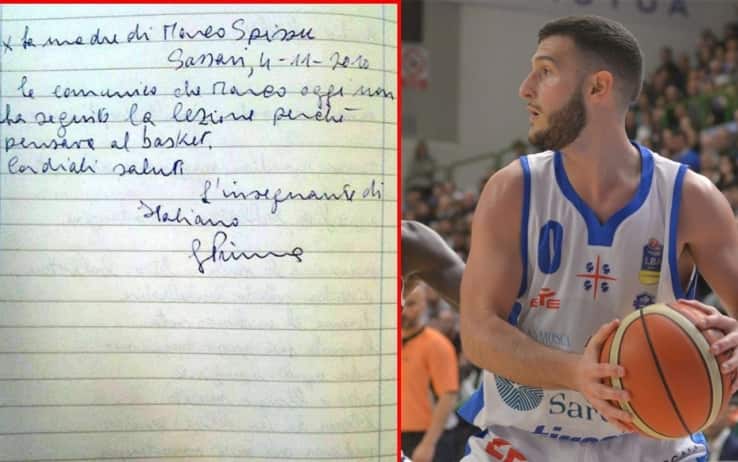 x la madre di Marco Spissu
Sassari, 4-11-2010
le comunico che Marco oggi non
ha seguito la lezione perché
pensava al basket.
Cordiali saluti
L'insegnante di
Italiano
0
LBA
Sar